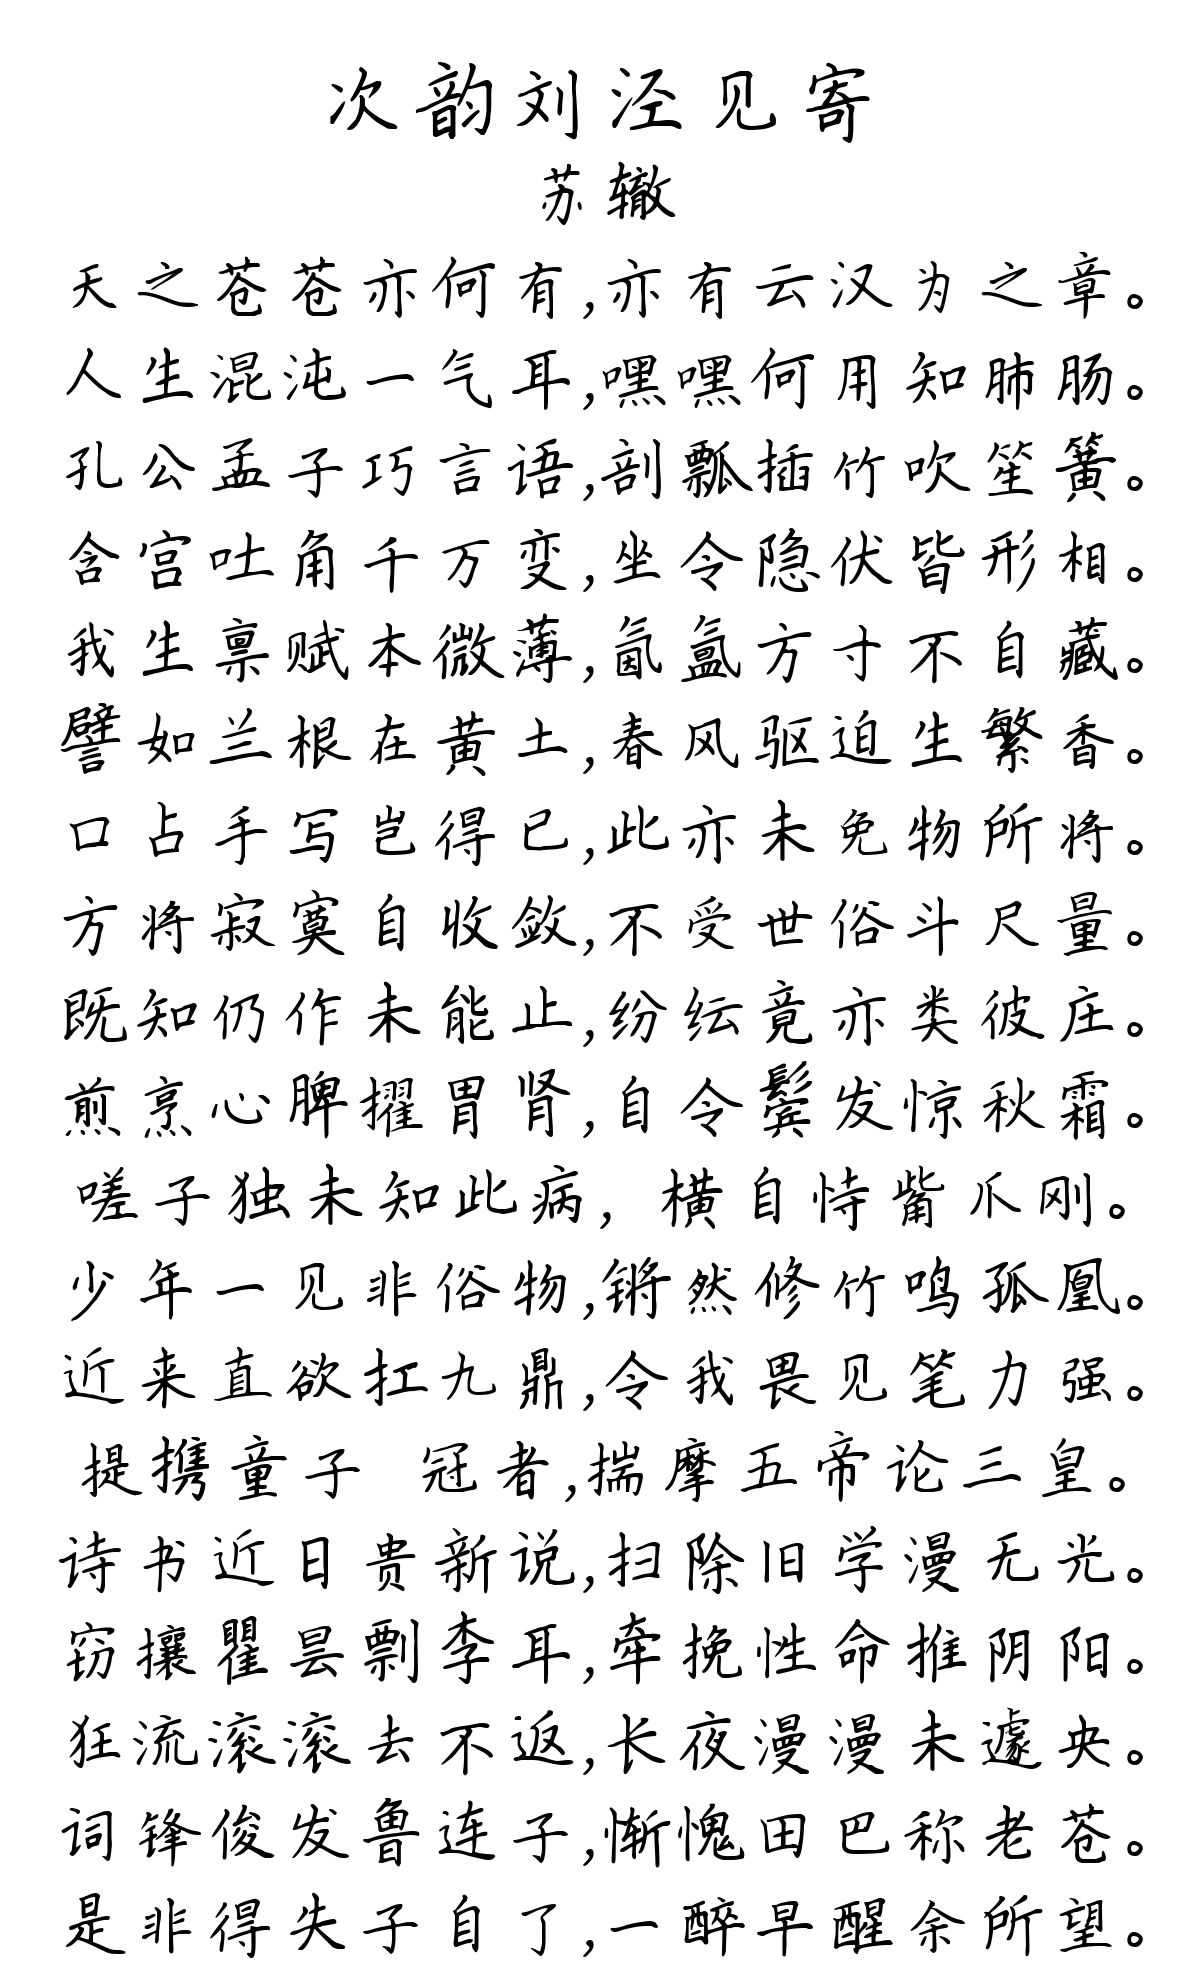 次韵刘泾见寄
苏辙
天之苍苍亦何有,亦有云汉为之章。
人生混沌一气耳,嘿嘿何用知肺肠。
孔公孟子巧言语,剖瓢插竹吹笙簧。
含宫吐角千万变,坐令隐伏皆形相。
我生禀赋本微薄,氤氲方寸不自藏。
譬如兰根在黄土,春风驱迫生繁香。
口占手写岂得已,此亦未免物所将。
方将寂寞自收敛,不受世俗斗尺量。
既知仍作未能止,纷纭竟亦类彼庄。
煎烹心脾擢胃肾,自令鬓发惊秋霜。
嗟子独未知此病，横自恃觜爪刚。
少年一见非俗物,锵然修竹鸣孤凰。
近来直欲扛九鼎,令我畏见笔力强。
提携童子 冠者,揣摩五帝论三皇。
诗书近日贵新说,扫除旧学漫无光。
窃攘瞿昙剽李耳,牵挽性命推阴阳。
狂流滚滚去不返,长夜漫漫未遽央。
词锋俊发鲁连子,惭愧田巴称老苍。
是非得失子自了,一醉早醒余所望。